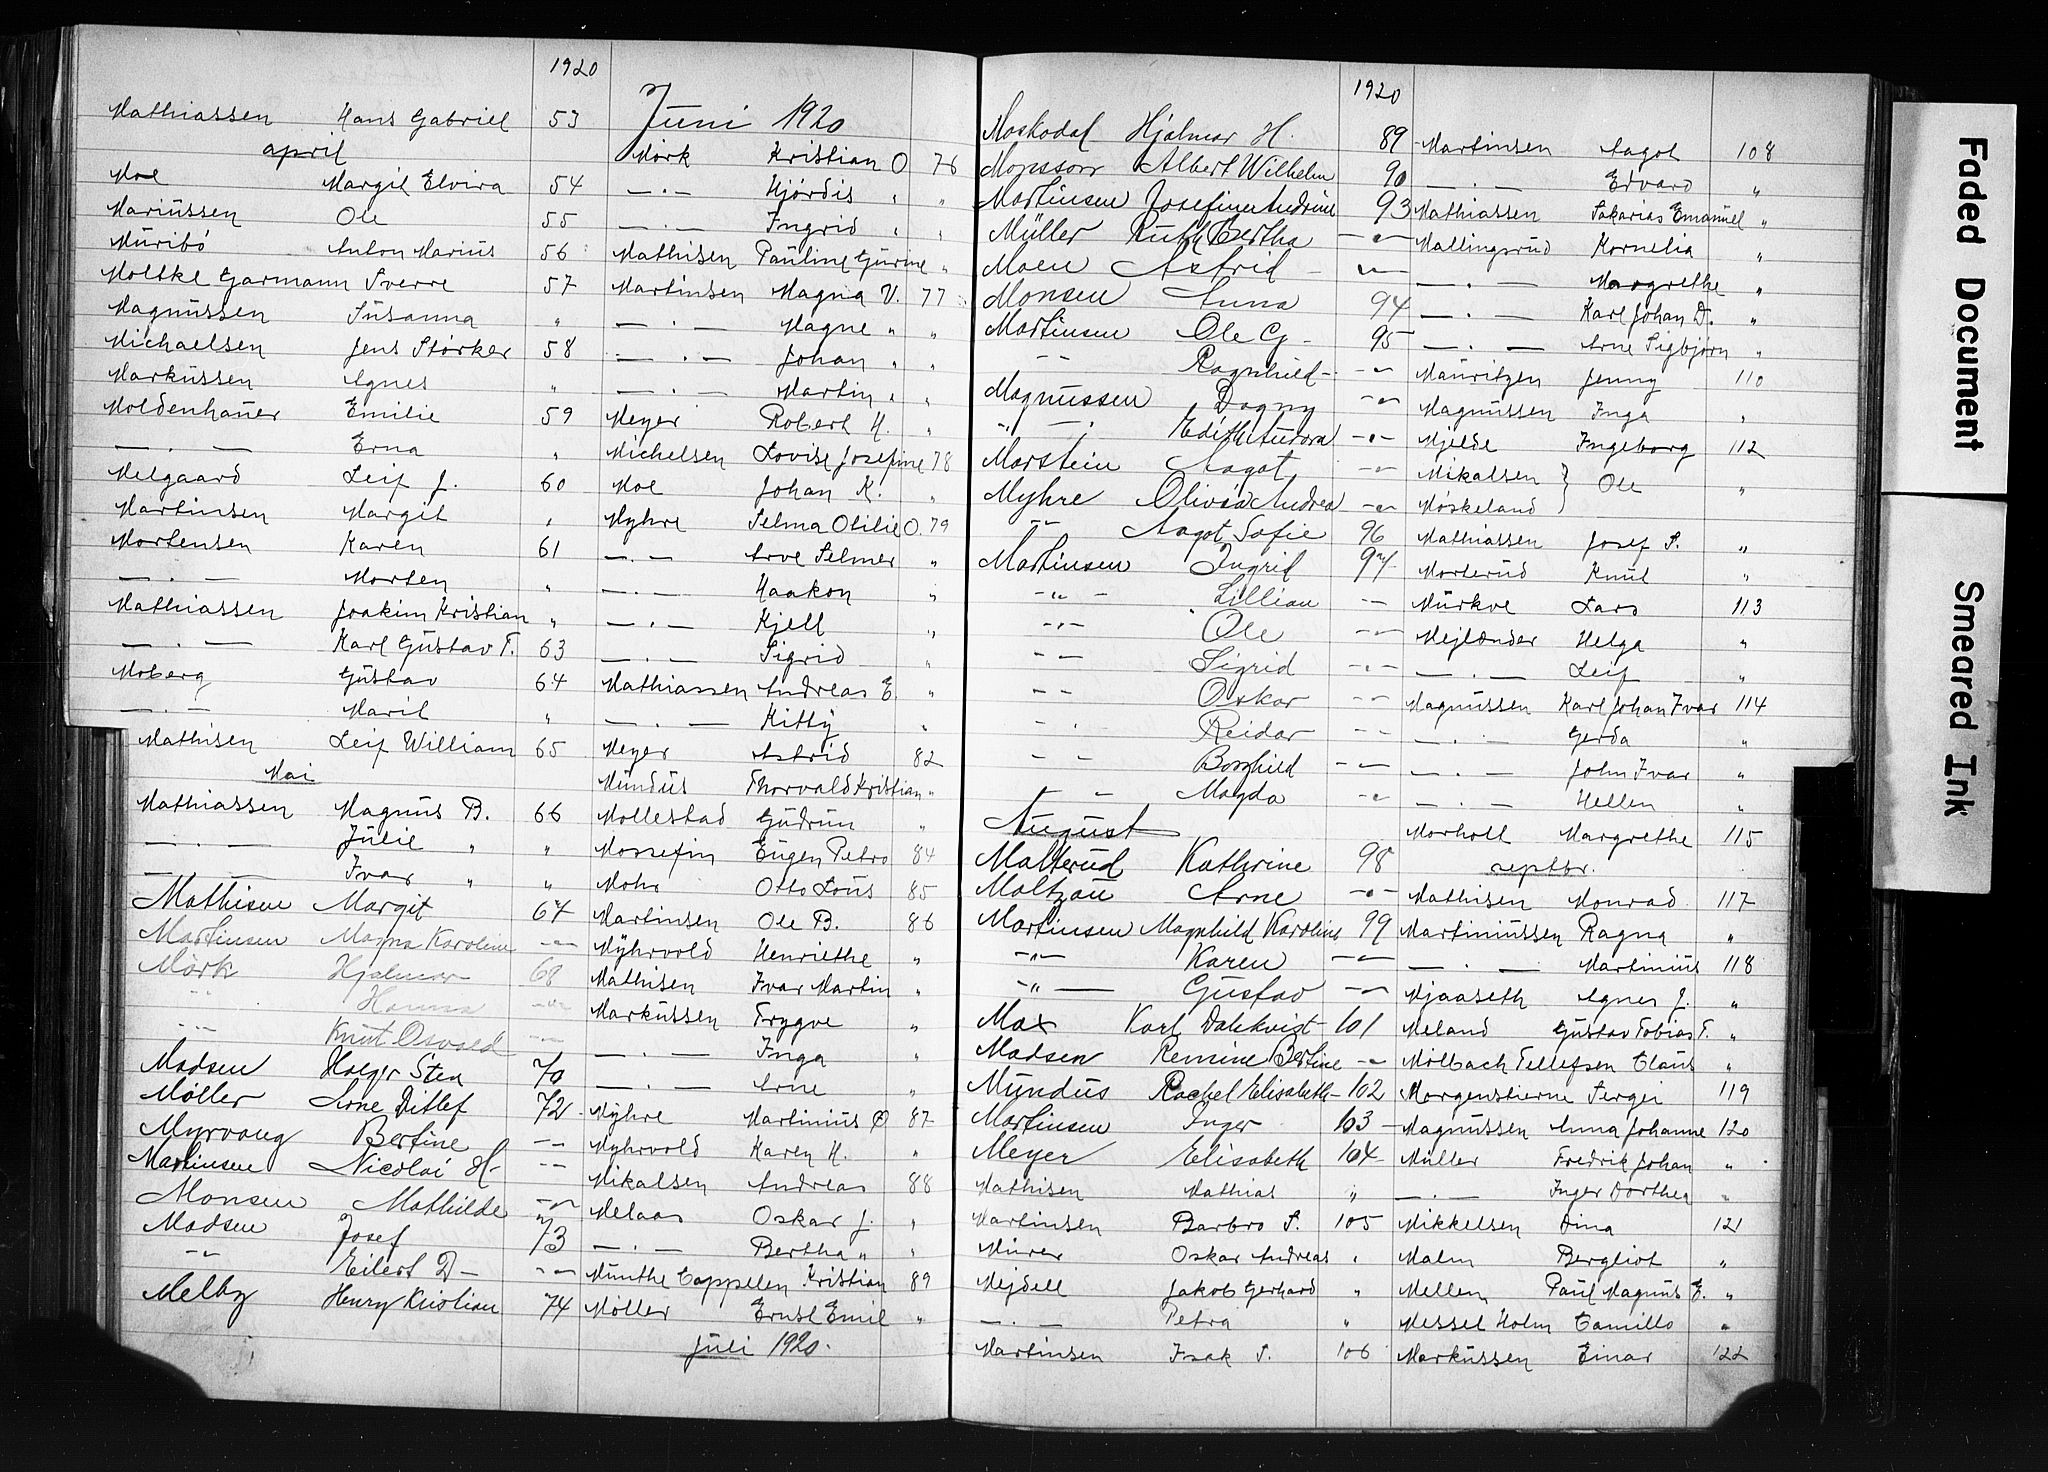 1920
Mathiassen Hans Gabriel 53
april
Moe Margit Elvira 54
Mariussen Ole 55
Muribö Anton Marius 56
Moltke Garmann Sverre 57
Magnussen Susanna "
Michaelsen Jens Størker 58
Markussen Agnes "
Moldenhauer Emilie 59
— . — Erna "
Melgaard Leif J. 60
Martinsen Margit "
Mortensen Karen 61
— . — Morten "
Mathiassen Joakim Kristian "
— . — Karl Gustav T. 63
Moberg Gustav 64
— . — Marit "
Mathisen Leif William 65
Mai
Mathiassen Magnus B. 66
— . — Julie " "
— . — Ivar " "
Mathisen Margit 67
Martinsen Magna Karoline — " —
Mörk Hjalmar 68
— " — Hanna — " —
— " — Knut Osvald — " —
Madsen Holger Sten 70
Møller Arne Ditlef 72
Myrvang Bertine — " —
Martinsen Nicolai H- — " —
Monsen Mathilde — " —
Madsen Josef 73
— " — Eilert D — — " —
Melby Henry Kristian 74
Juni 1920
Mörk Kristian O 76
— . — Hjördis " "
— . — Ingrid " "
Mathisen Pauline Gurine "
Martinsen Magna V. 77
— . — Magne " "
— . — Johan " "
— . — Martin " "
Meyer Robert H. "
Michelsen Lovise Josefine 78
Moe Johan K. "
Myhre Selma Otilie O. 79
— . — Arve Selmer "
— . — Haakon "
— . — Kjell "
— . — Sigrid "
Mathiassen Andreas E. "
— . — Kitty "
Meyer Astrid 82
Mundus Thorvald Kristian "
Mollestad Gudrun "
Mossefin Eugen Petro 84
Mohr Otto Lous 85
Martinsen Ole B. 86
Myhrvold Henriethe "
Mathisen Ivar Martin "
Markussen Trygve "
— . — Inga "
— . — Arne "
Myhre Martinius O 87
Myhrvold Karen H. "
Mikalsen Andreas 88
Melaas Oskar J. "
— . — Bertha " "
Munthe Cappelen Kristian 89
Møller Ernst Emil "
Juli 1920.
1920
Moskodal Hjalmar H. 89
Monsson Albert Wilhelm 90
Martinsen Josefine Andrine 93
Müller Ruth Bertha — " —
Moen Astrid — " —
Monsen Anna 94
Martinsen Ole G- 95
— " — Ragnhild — " —
Magnussen Dagny — " —
" — " Edith Aurora — " —
Marstein Aagot — " —
Myhre Olivia Andrea — " —
— " — Aagot Sofie 96
Martinsen Ingrid 97
— " — Lillian — " —
— " — Ole — " —
— " — Sigrid — " —
— " — Oskar — " —
— " — Reidar — " —
— " — Borghild — " —
— " — Magda — " —
August
Malterud Kathrine 98
Maltzau Arne — " —
Martinsen Magnhild Karoline 99
— " — Karen — " —
— " — Gustav — " —
Max Karl Dahlkvist 101
Madsen Remine Bertine — " —
Mundus Rachel Elisabeth 102
Martinsen Inger 103
Meyer Elisabeth 104
Mathisen Mathias "
Martinsen Barbro S. 105
Murer Oskar Andreas "
Mejdell Jakob Gerhard "
— . — Petra "
Martinsen Isak S. 106
Martinsen Aagot 108
— . — Edvard "
Mathiassen Sakarias Emanuel "
Mallingsrud Kornelia "
— . — Margrethe "
— . — Karl Johan D. "
— . — Arne Sigbjørn "
Mauritzen Jenny 110
Magnussen Inga "
Mjelde Ingeborg 112
Mikalsen } Ole "
Møskeland
Mathiassen Josef S. "
Morterud Knut "
Murkve Lars 113
Mejlænder Helga "
— . — Leif "
Magnussen Karl Johan Ivar 114
— . — Gerda "
— . — John Ivar "
— . — Hellen "
Morholt Margrethe 115
septbr.
Mathisen Monrad 117
Martiniussen Ragna "
— . — Martinius 118
Mjaaseth Agnes J. "
Meland Gustav Tobias T. "
Mølbach Tellefsen Claus "
Morgenstierne Sergei 119
Magnussen Anna Johanne 120
Müller Fredrik Johan "
— . — Inger Dorthea "
Mikkelsen Dina 121
Malm Bergliot "
Mellem Paul Magnus E. "
Messel Holm Camillo "
Markussen Einar 122
Faded Document
Smeared Ink